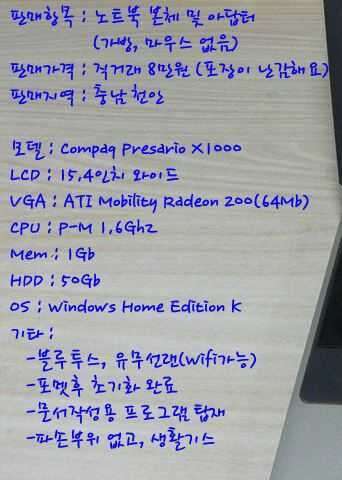 판매항목 : 노트북 본체 및 아답터
(가방, 마우스 없음)
판매가격 : 직거래 8만원 (포장이 난감해요)
판매지역 : 충남 천안
모델 : Compaq Presario X1000
LCD : 15.4인치 와이드
VGA : ATI Mobility Radeon 200(64Mb)
CPU : P-M 1.6Ghz
Mem : 1Gb
HDD : 50Gb
OS : Windows Home Edition K
기타 :
-블루투스, 유무선랜(Wifi가능)
-포멧후 초기화 완료
-문서작성용 프로그램 탑재
-파손부위 없고, 생활기스